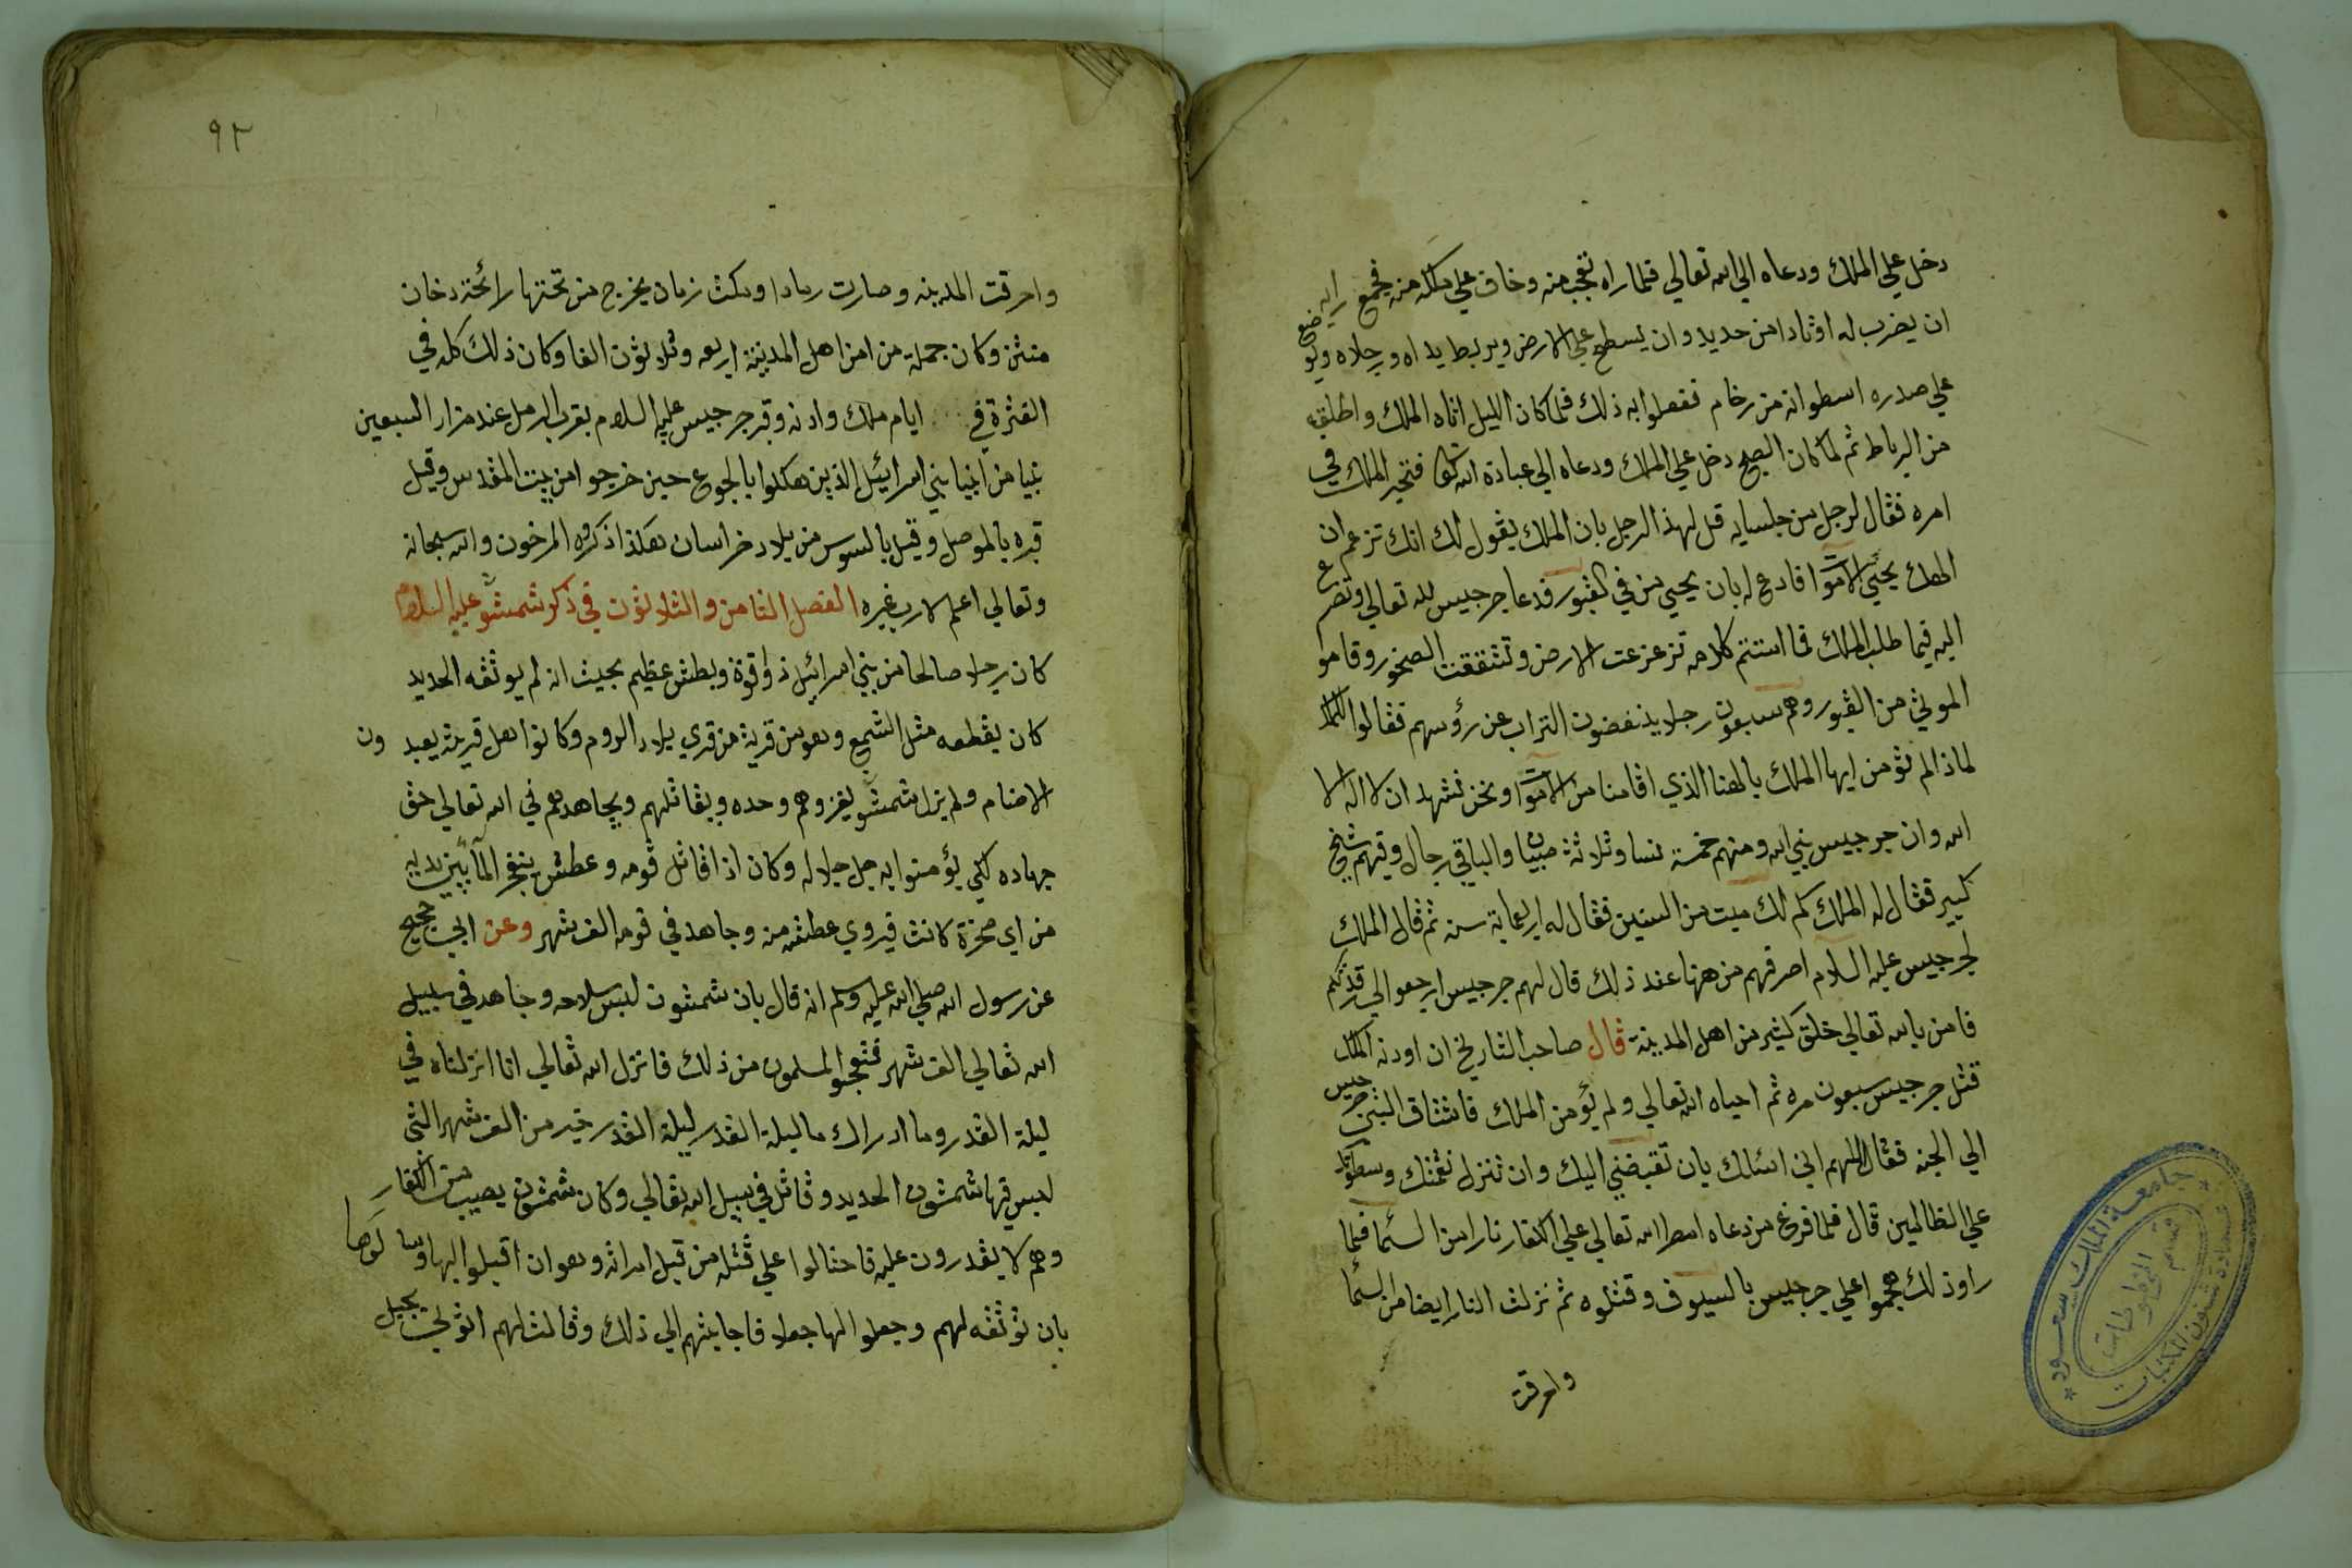 دخل علي الملك ودعاه الي الله تعالي فلما راه تعجب منه وخاف علي ملكه منه فجمع رايه
ان يضرب له اوتادا من حديد وان يسطح علي الارض ويربط يداه ورجلاه ويوضع
علي صدره اسطوانه من رخام ففعلوا به ذلك فلما كان الليل اتاه الملك واطلقه
من الرباط ثم لما كان الصبح دخل علي الملك ودعاه الي عبادة الله تعا فتحير الملك في
امره فقال لرجل من جلسايه قل لهذ الرجل بان الملك يقول لك انك تزعم ان
الهك يحيي الاموات فادع له بان يحيي من في القبور فدعا جرجيس لله تعالي وتضرع
اليه فيما طلب الملك فما استتم كلامه تزعزعت الارض وتشققت الصخور وقاموا
الموتي من القبور وهم سبعون رجلا ينفضون التراب عن رؤسهم فقالوا للملك
لماذا لم تؤمن ايها الملك بالهنا الذي اقامنا من الاموات ونحن نشهد ان لا اله الا
الله وان جرجيس نبي الله ومنهم خمسة نسا وثلاثة صبيان والباقي رجال وفيهم شيخ
كبير فقال له الملك كم لك ميت من السنين فقال له اربعماية سنه ثم قال الملك
لجرجيس عليه السلام اصرفهم من ههنا عند ذلك قال لهم جرجيس ارجعوا الي
فامن بالله تعالي خلق كثير من اهل المدينة قال صاحب التاريخ ان اودنه الملك
قتل جرجيس سبعون مره ثم احياه الله تعالي ولم يؤمن الملك فاشتاق النبي جرجيس
الي الجنه فقال اللهم اني اسئلك بان تقبضني اليك وان تنزل نقمتك وسطوتك
علي الظالمين قال فلما فرغ من دعاه امطر الله تعالي علي الكفار نارا من السما فلما
راو ذلك هجموا علي جرجيس بالسيوف وقتلوه ثم نزلت النار ايضا من السما
واحرقت
جامعة الملك سعود
قسم المخطوطات
عمادة شئون المكتبات
٩٢
واحرقت المدينه وصارت رمادا ومكث زمان يخرج من تحتها رائحة دخان
منتن وكان جملة من امن اهل المدينة اربعه وثلاثون الفا وكان ذلك كله في
الفترة في ايام ملك وادنه وقبر جرجيس عليه السلام بقرب الرمل عند مزار السبعين
نبيا من انبيا بني اسرائيل الذين هلكوا بالجوع حين خرجوا من بيت المقدس وقيل
قبره بالموصل وقيل بالسوس من بلاد خراسان هكذا ذكروه المرخون والله سبحانه
وتعالي اعلم لا رب غيره الفصل الثامن والثلاثون في ذكر شمشون عليه السلام
كان رجلا صالحا من بني اسرائيل ذا قوة وبطش عظيم بحيث انه لم يوثقه الحديد
كان يقطعه مثل الشمع وهو من قرية من قري بلاد الروم وكانوا اهل قريته يعبدون
الاصنام ولم يزل شمشون يغزوهم وحده ويقاتلهم ويجاهدهم في الله تعالي حق
جهاده لكي يؤمنوا به جل جلاله وكان اذا قاتل قومه وعطش ينفجر المآ بين يديه
من اي صخرة كانت فيروي عطشه منه وجاهد في قومه الف شهر وعن ابي نجيح
عن رسول الله صلي الله عليه وسلم انه قال بان شمشون لبس سلاحه وجاهد في سبيل
الله تعالي الف شهر فتعجبوا المسلمون من ذلك فانزل الله تعالي انا انزلناه في
ليلة القدر وما ادراك ما ليلة القدر ليلة القدر خير من الف شهر التي
لبس فيها شمشون الحديد وقاتل في سبيل الله تعالي وكان شمشون يصيب من الكفار
وهم لا يقدرون عليه فاحتالوا علي قتله من قبل امراته وهو ان اقبلوا اليها وسالوها
بان توثقه لهم وجعلوا لها جعلا فاجابتهم الي ذلك وقالت لهم اتوني بحبل